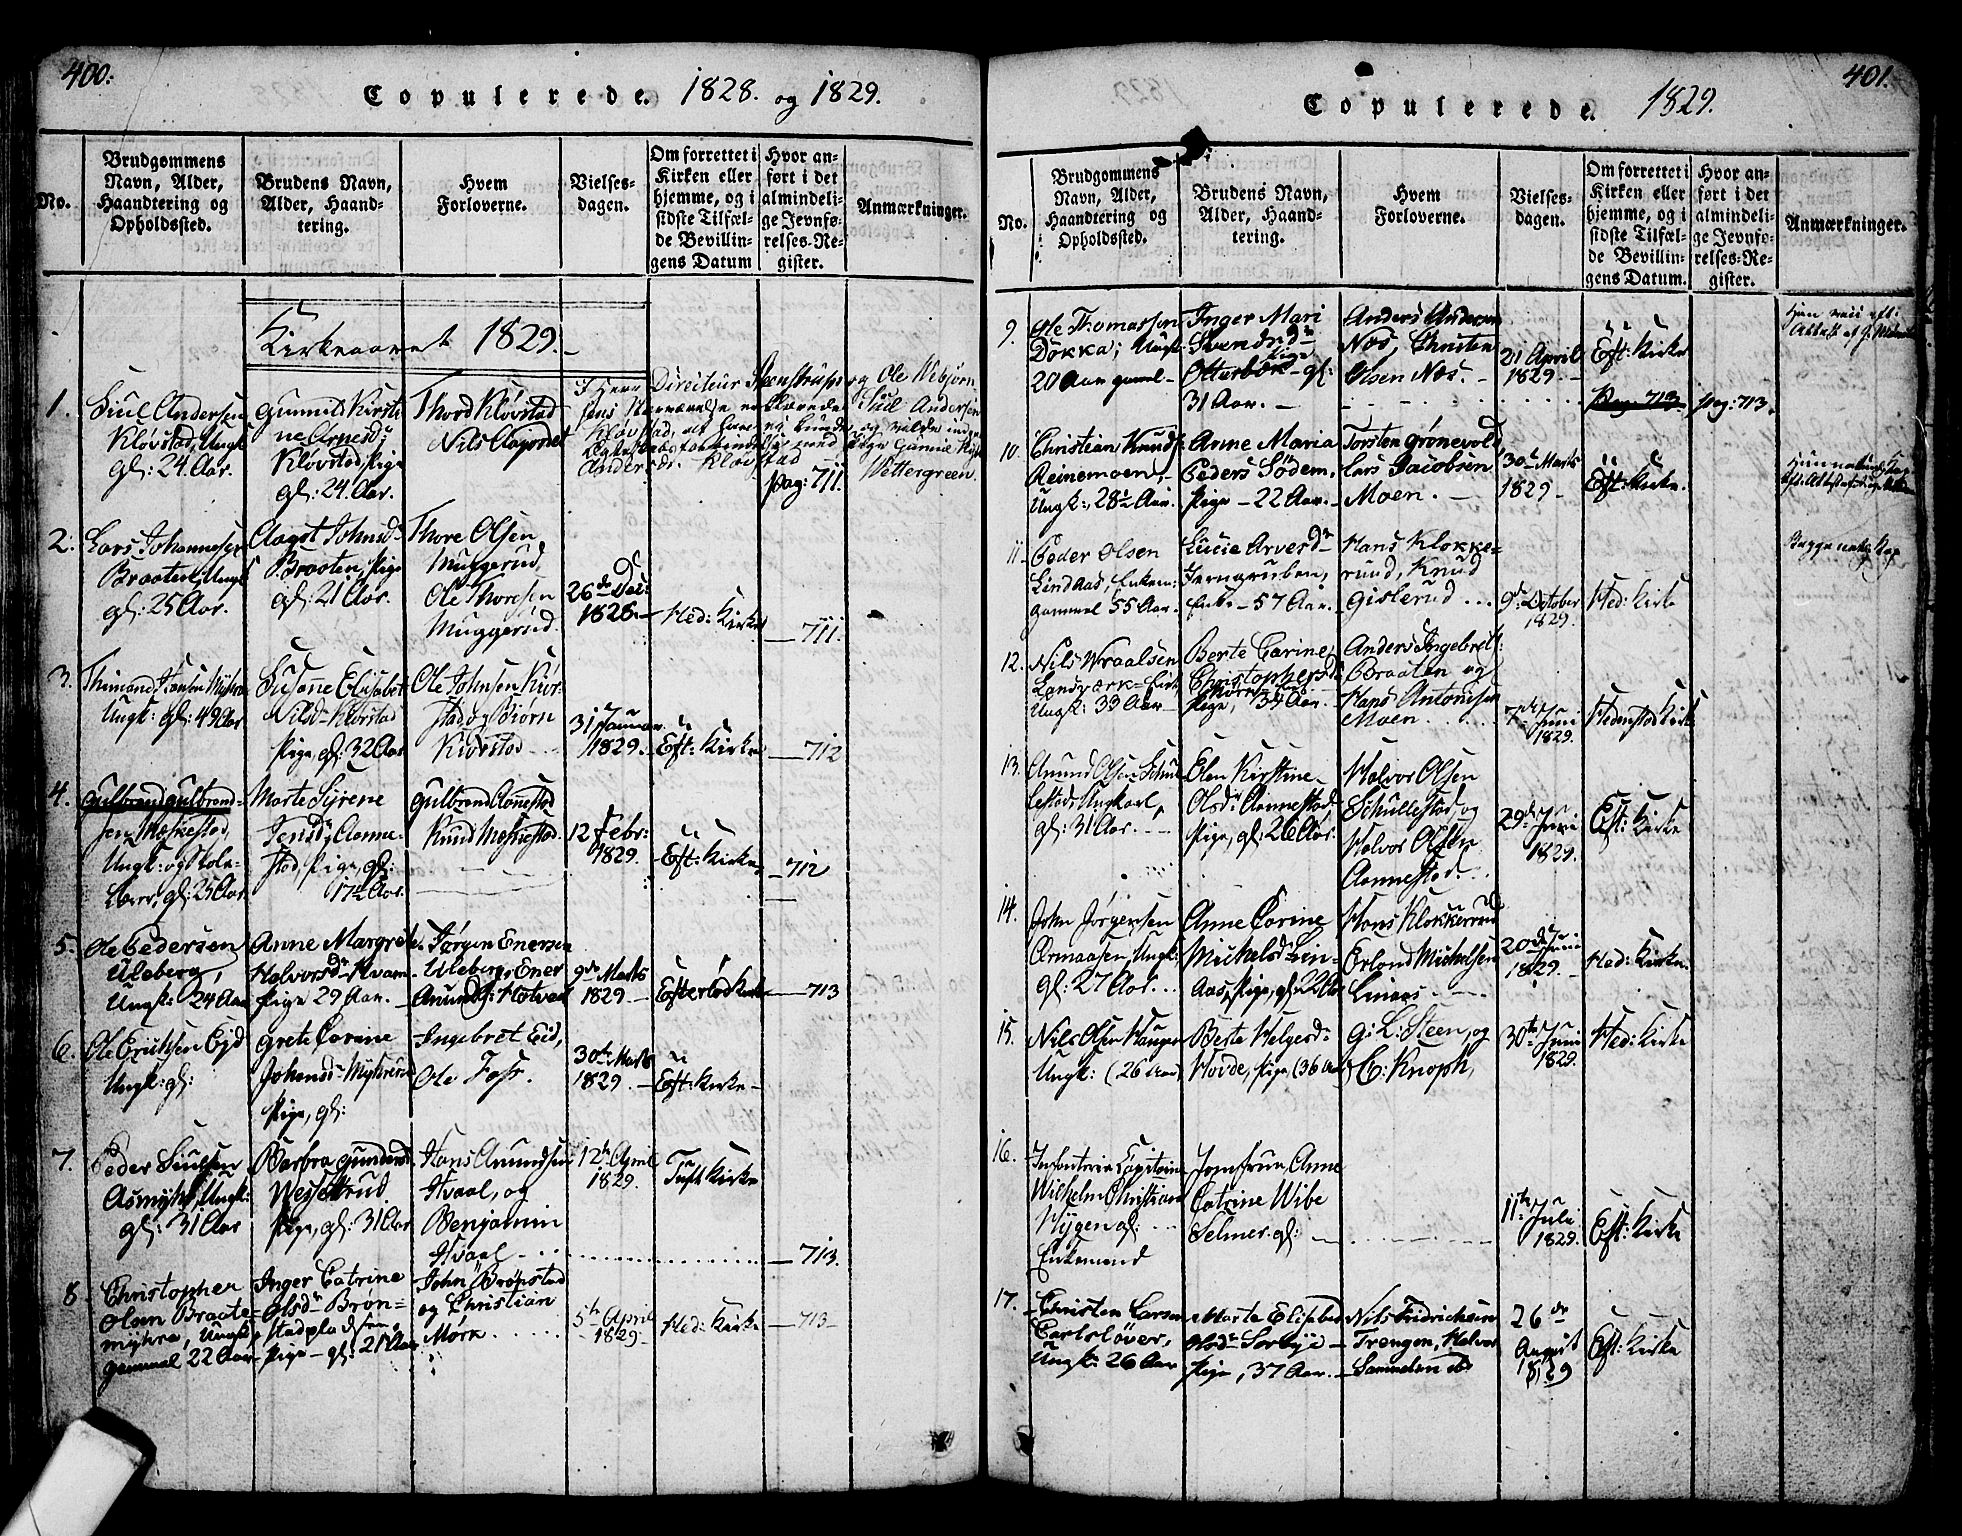 400.
Copulerede. 1828. og 1829.
No.
Brudgommens
Navn, Alder,
Haandtering og
Opholdssted.
Brudens Navn,
Alder, Haand-
tering.
Hvem
Forloverne.
Vielses-
dagen.
Om forrettet i
Kirken eller
hjemme, og i
sidste Tilfæl-
de Bevillin-
gens Datum
Hvor an-
ført i det
almindeli-
ge Jevnfø-
relses-Re-
gister.
Anmærkninger.
Kirkeaaret 1829.
1.
Siul Andersen
Kløvstad, Ungk:
gl: 24 Aar.
Gunild Kirsti
ne Arnesd:
Kløvstad, Pige
gl: 24 Aar.
Thord Kløvstad
Nils
Directeur Steenstrup og Ole Webjørn
Wettergreen
Pag: 711.
2.
Lars Johannesen
Braaten, Ungk:
gl: 25 Aar.
Aagot Johnsd:
Braaten, Pige
gl: 21 Aar.
Thore Olsen
Muggerud,
Ole Thoresen
Muggerud.
26de Dec:
1828.
Hed: Kirke
711.
3.
Hansen
Ungk: gl: 49 Aar
Susanne Elisabet
Nilsd: Kløvstad
Pige, gl: 32 Aar
Ole Johnsen Kløv-
stad og Biørn
Kløvstad
31 Januar
1829.
Eft: Kirke
712
4.
Gulbrand Gulbrand-
sen Møskestad,
Ungk: og Skole-
Lærer, gl: 25 Aar
Marte Sirene
Jensd: Aanne-
stad, Pige, gl:
17½ Aar.
Gulbrand Aannestad
Knud Møskestad.
12 Febr:
1829.
Eft: Kirke
712
5.
Ole Pedersen
Uleberg,
Ungk: 24 Aar
Anne Margrete
Halvorsd: Hvam
Pige 29 Aar.
Jørgen Enersen
Uleberg, Ener
Amunds:
9de Marts
1829
Efteløt Kirke
713
6.
Ole Eriksen Eid
Ungk: gl:
Grete Carine
Johannsd:
Pige, gl:
Ingebret Eid,
Ole Foss.
30te Marts
1829.
Eft: Kirke
7.
Peder Siulsen
Asmyhr, Ungk:
gl: 31 Aar
Barbra Gundersd:
Pige, gl: 31 Aar
Hans Amundsen
Hvaal, og
Benjamin
Hvaal
12te April
1829.
Tuft Kirke
713.
8
Christopher
Olsen Braate-
myhra, Ungk:
gammel 22 Aar
Inger Catrine
Olsdr Brøn-
stadpladsen,
Pige gl: 21 Aar
John Brønstad
og Christian
Mørk
5te April
1829
Hed: Kirke
713
401.
Copulerede. 1829.
No.
Brudgommens
Navn, Alder,
Haandtering og
Opholdssted.
Brudens Navn,
Alder, Haand-
tering.
Hvem
Forloverne.
Vielses-
dagen.
Om forrettet i
Kirken eller
hjemme, og i
sidste Tilfæl-
de Bevillin-
gens Datum.
Hvor an-
ført i det
almindeli-
ge Jevnfø-
relses-Re-
gister.
Anmærkninger.
9.
Ole Thomassen
Døkka, Ungk:
20 Aar gaml
Inger Mari
Otterbek gl:
31 Aar.
Anders Andersen
Næs, Christen
Olsen Næs.
21 April
1829.
Eft: Kirke
Pag: 713
Pag: 713.
10.
Christian Knuds:
Reinemoen,
Ungk:, 28½ Aar.
Anne Maria
Peders Sødem,
Pige 22 Aar.
Torsten Grønevold
Lars Jacobsen
Moen.
30te Marts
1829
Eft: Kirke.
11
Peder Olsen
Lindaas, Enkem:
gammel 55 Aar.
Lucie Arvesdr
Jerngruben,
Enke 57 Aar.
Hans Klokke-
rud, Knud
Gislerud
9de October
1829.
Hed: Kirke
Begge
12.
Nils Wraalsen
Ungk: 33 Aar
Berte Carine
Christophersdr
Pige, 34 Aar.
Anders Ingebret:
Braaten og
Hans Antonisen
Moen
7de Juni
1829.
Hedenstad Kirke
13.
Amund Olsen
Ungkarl,
gl: 31 Aar.
Elen Kirstine
Olsdr Aannestad
Pige, gl: 26 Aar.
Halvor Olsen
Schullestad, og
Halvor Olsen
Aannestad.
29de Juni
1829.
Eft: Kirke
14.
John Jørgensen
Ormaasen, Ungk:
gl: 27 Aar.
Anne Carine
Michelsd: Lin-
aas, Pige, gl: 22 Aar
Hans Klokkerud
Erland Michelsen
Linaas
20de Juni
1829.
Hed: Kirke.
15.
Nils Olsen Hauger
Ungk: (26 Aar)
Berte Helgesd:
Hovde, Pige, (36 Aar)
G: L: Steen, og
C: Knoph,
30te Juni
1829.
Hed: Kirke
16.
Infanterie Capitain
Wilhelm Christian
Hygen gl:
Enkemand
Jomfrue Anne
Catrine Wibe
Selmer gl:
11te Juli
1829.
Eft: Kirke
17.
Christen Larsen
Carlsløver,
Ungk: 26 Aar
Marte Elisebet
Olsdr Sorbye
Pige, 37 Aar.
Nils Fridrichsen
Trengen, Halvor
Samuelsen
26de
August
1829
Eft: Kirke